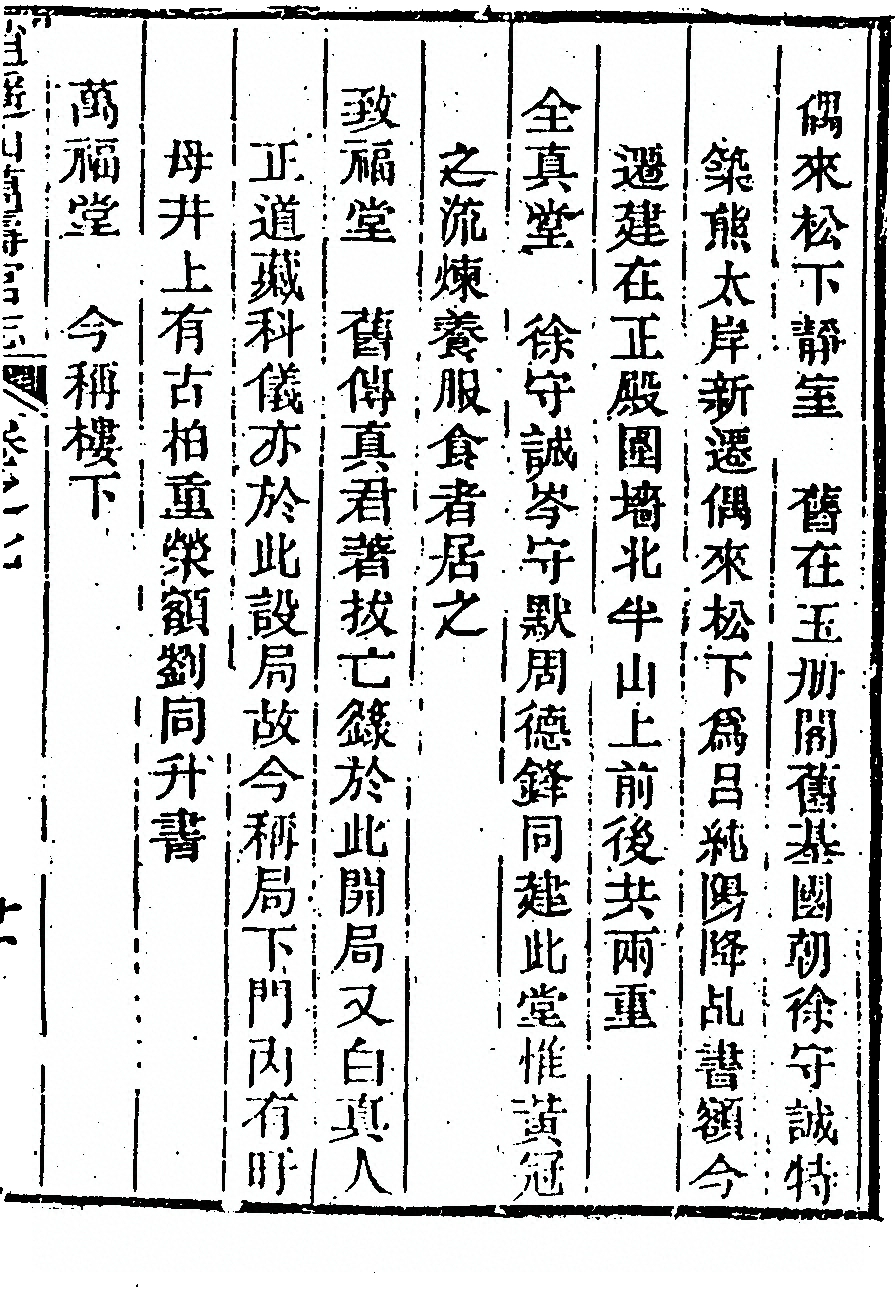 偶來松下靜室　舊在玉册閣舊基國朝徐守誠特
築熊太岸新遷偶來松下爲吕純陽降乩書額今
遷建在正殿圍墻北半山上前後共兩重
全真堂　徐守誠岑守默周德鋒同建此堂惟黃冠
之流煉養服食者居之
致福堂　舊傳真君著拔亡籙於此開局又白真人
正道藏科儀亦於此設局故今稱局下門內有盱
母井上有古柏重榮額劉同升書
萬福堂　今稱樓下
逍遥山萬壽宮志　卷之七　十一